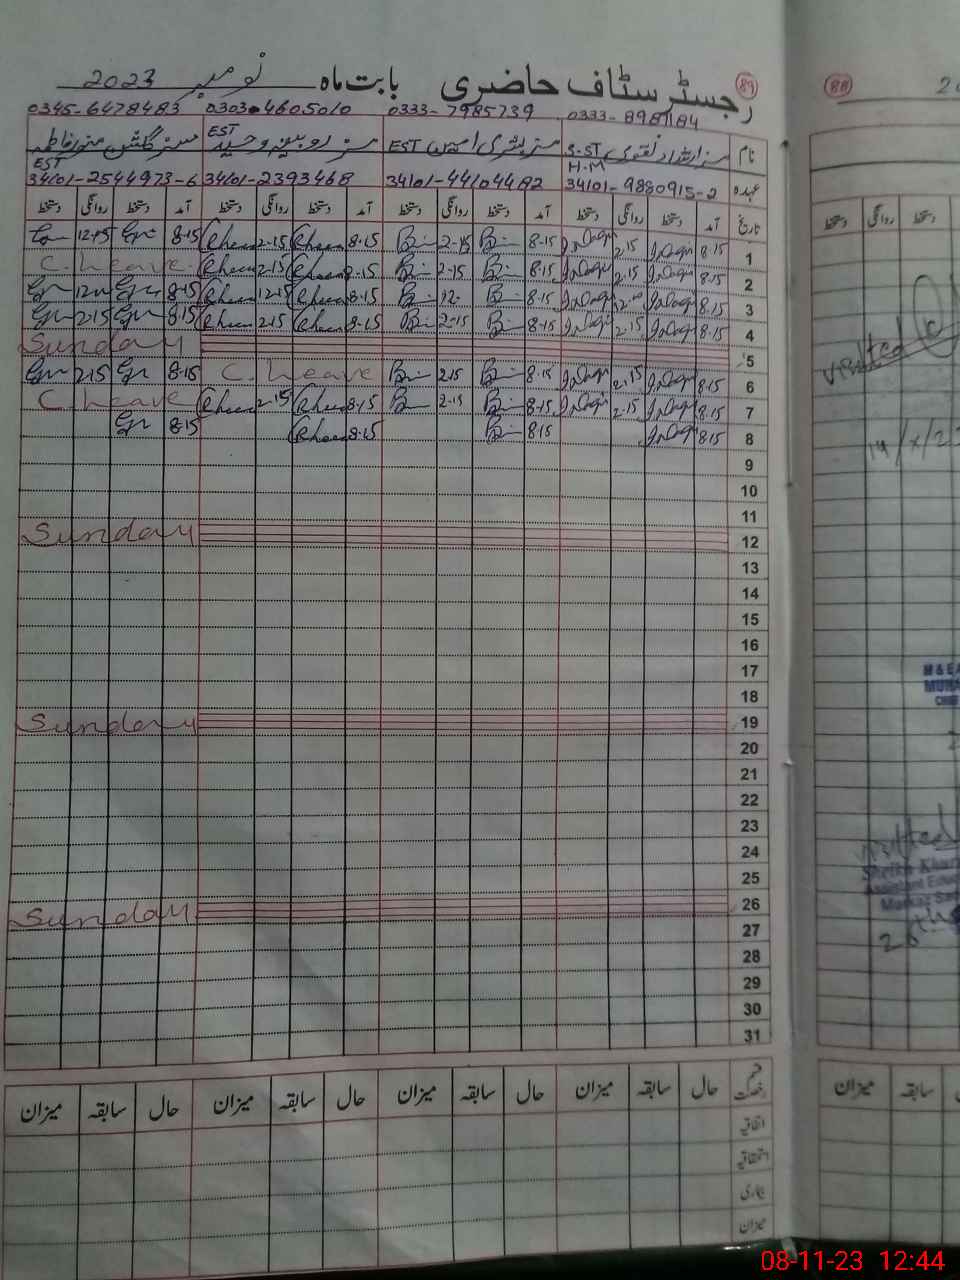 رجسٹر سٹاف حاضری بابت ماہ نومبر 2023
89
0333-8981184 0333-7985739 0303-4605010 0345-6478483
نام مسز ارشاد نقوی S.ST مسز بشری EST مسز روبینہ وحید EST مسز گلشن منور فاطمہ
عہدہ H.M EST
34101-9880915-2 34101-44104482 34101-2393468 34101-2544973-6
تاریخ آمد دستخط روانگی دستخط آمد دستخط روانگی دستخط آمد دستخط روانگی دستخط آمد دستخط روانگی دستخط
1 8-15 2.15 8-15 2-15 8-15 2-15 8-15 12-15
2 8-15 2.15 8-15 2-15 8-15 2-15 C. Leave
3 8-15 12.00 8-15 12- 8-15 12-15 8-15
4 8-15 2.15 8-15 2-15 8-15 2-15 8-15 2-15
5 Sunday
6 8-15 2.15 8-15 2-15 C. Leave 8-15 2-15
7 8-15 2-15 8-15 2-15 8-15 2-15 C. Leave
8 8-15 8-15 8-15 8-15
9
10
11
12 Sunday
13
14
15
16
17
18
19 Sunday
20
21
22
23
24
25
26 Sunday
27
28
29
30
31
قسم رخصت حال سابقہ میزان حال سابقہ میزان حال سابقہ میزان حال سابقہ میزان
اتفاقیہ
استحقاقیہ
بیماری
میزان
88
دستخط روانگی دستخط
visited
19/X/23
M & EA
visited
Assistant Educ
Markaz
26th
سابقہ میزان
08-11-23 12:44